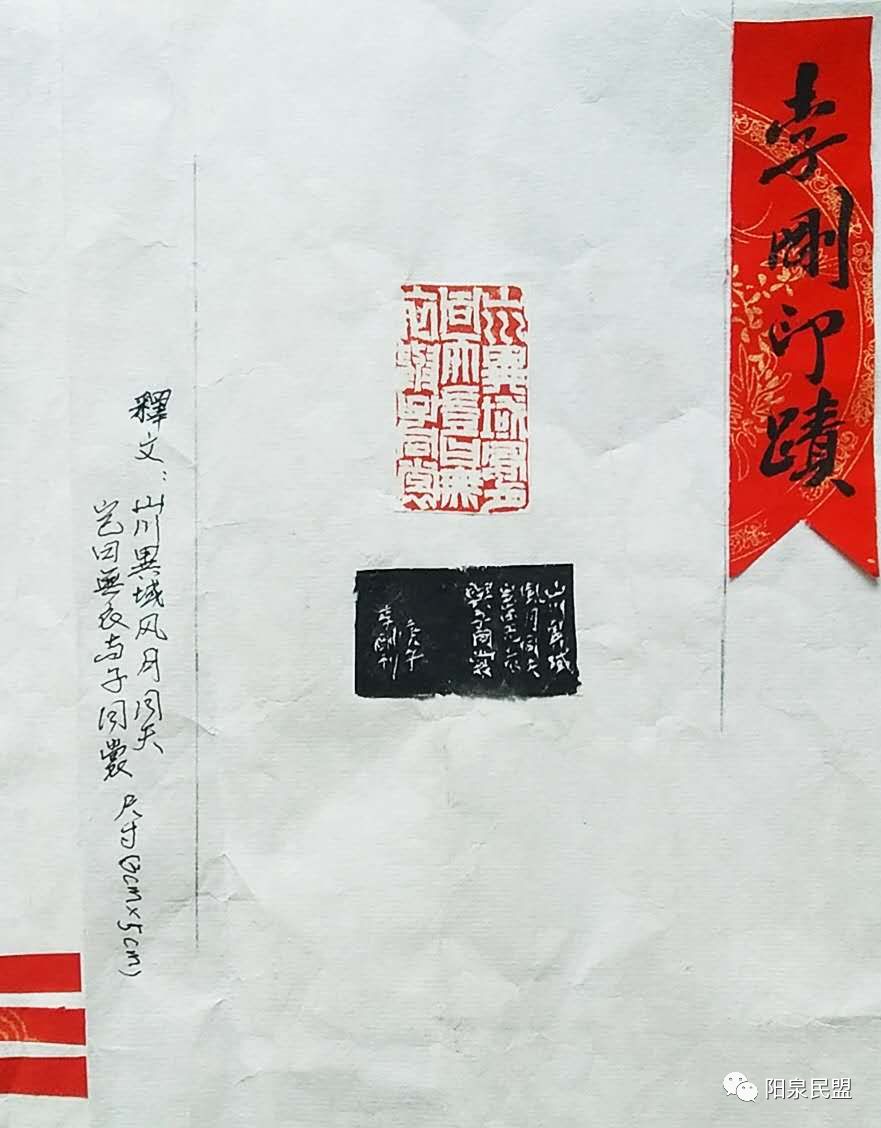 李剛印蹟
山川異域風月
同天豈曰無
衣與子同裳
山川異域
風月同天
豈曰无衣
與子同裳
李剛刊
釋文：山川異域风月同天
岂曰無衣与子同裳 尺寸
阳泉民盟